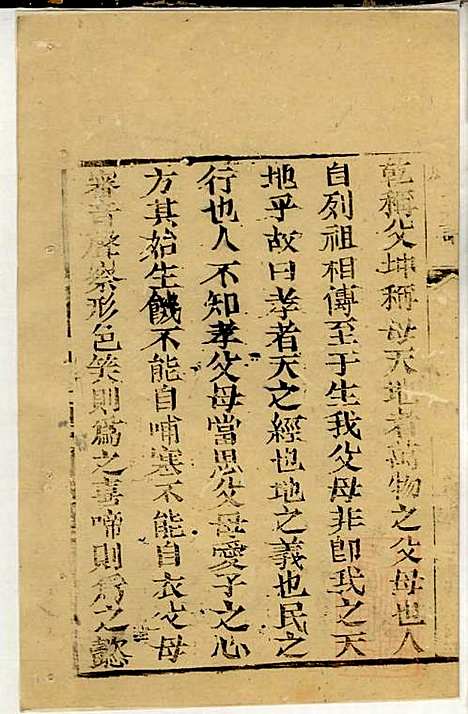 乾稱父坤稱母天地者萬物之父母也人
自列祖相傳至于生我父母非即我之天
地乎故曰孝者天之經也地之義也民之
行也人不知孝父母當思父母愛子之心
方其始生饑不能自哺寒不能自衣父母
審音聲察形色笑則爲之喜啼則爲之懿